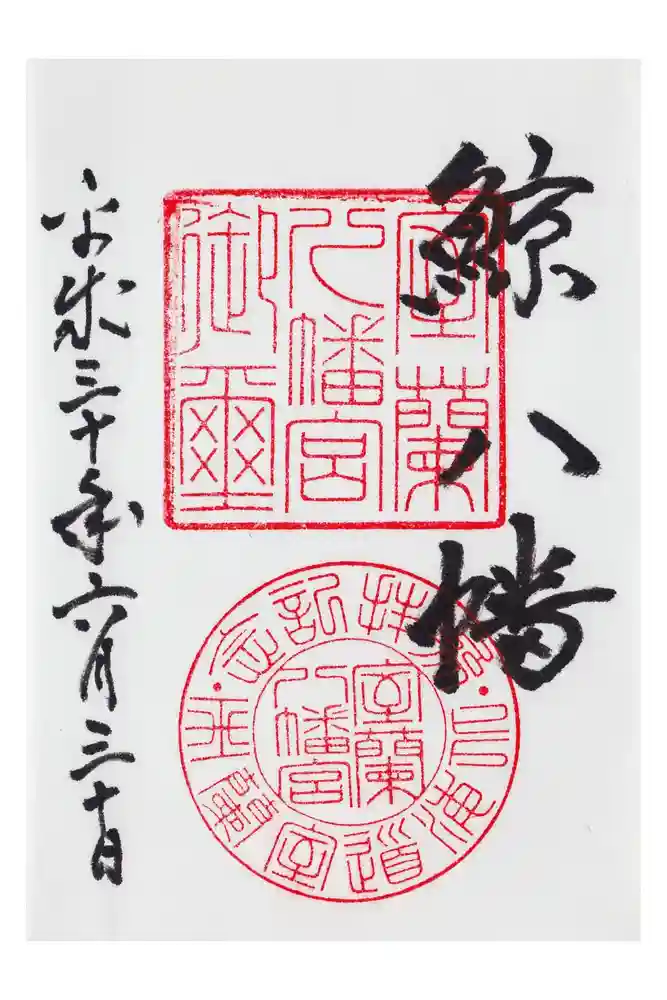 鯨八幡
室蘭
八幡宮
御璽
参拝記念
北海道室蘭市
室蘭
八幡宮
平成三十年六月三十日